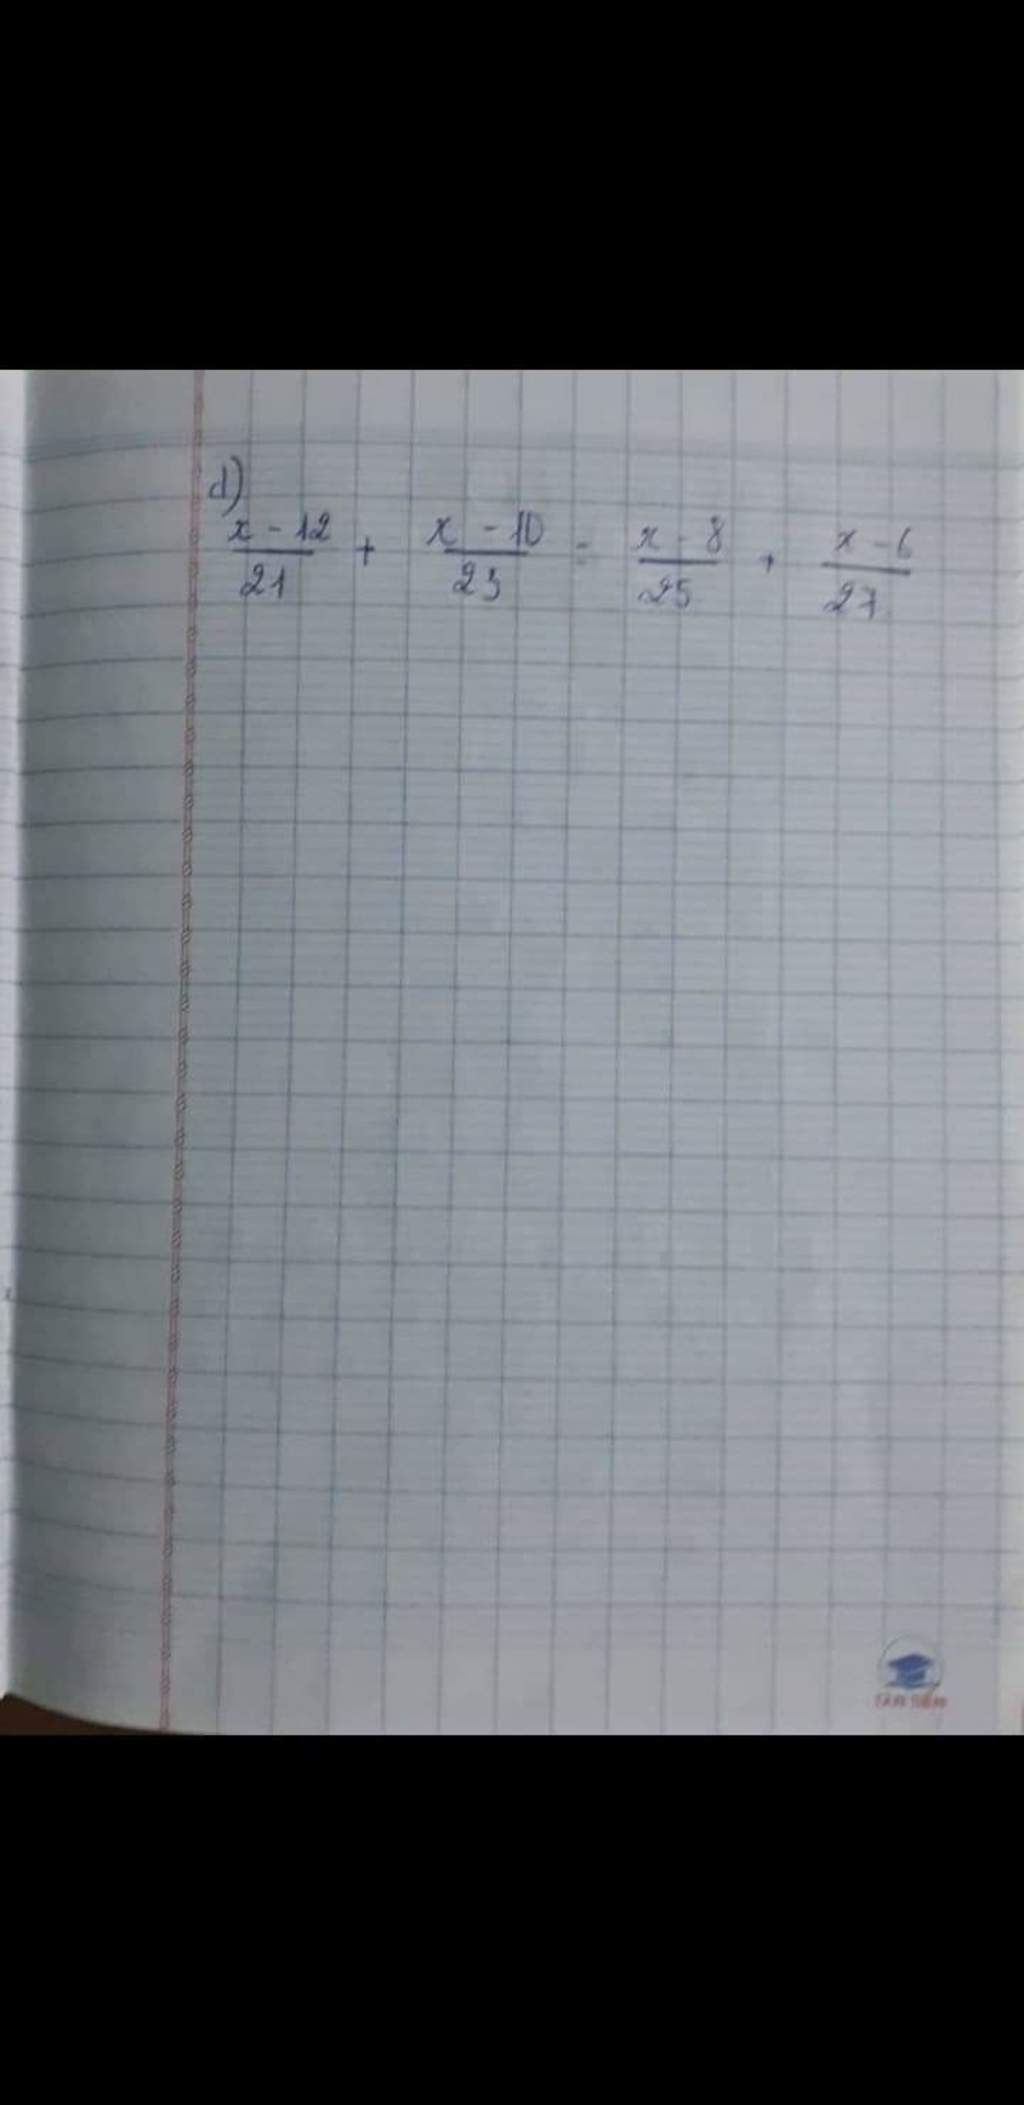 d)
x - 12 / 21 + x - 10 / 23 = x - 8 / 25 + x - 6 / 27